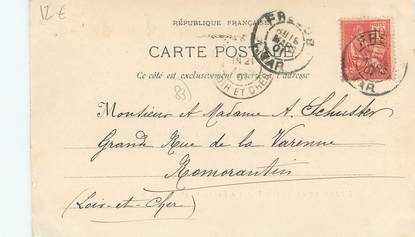 12 €
RÉPUBLIQUE FRANÇAISE
CARTE POSTALE
Ce côté est exclusivement réservé à l'adresse
VAR
83
Monsieur et Madame A. Schuster
Grande Rue de la Varenne
Romorantin
(Loir-et-Cher)